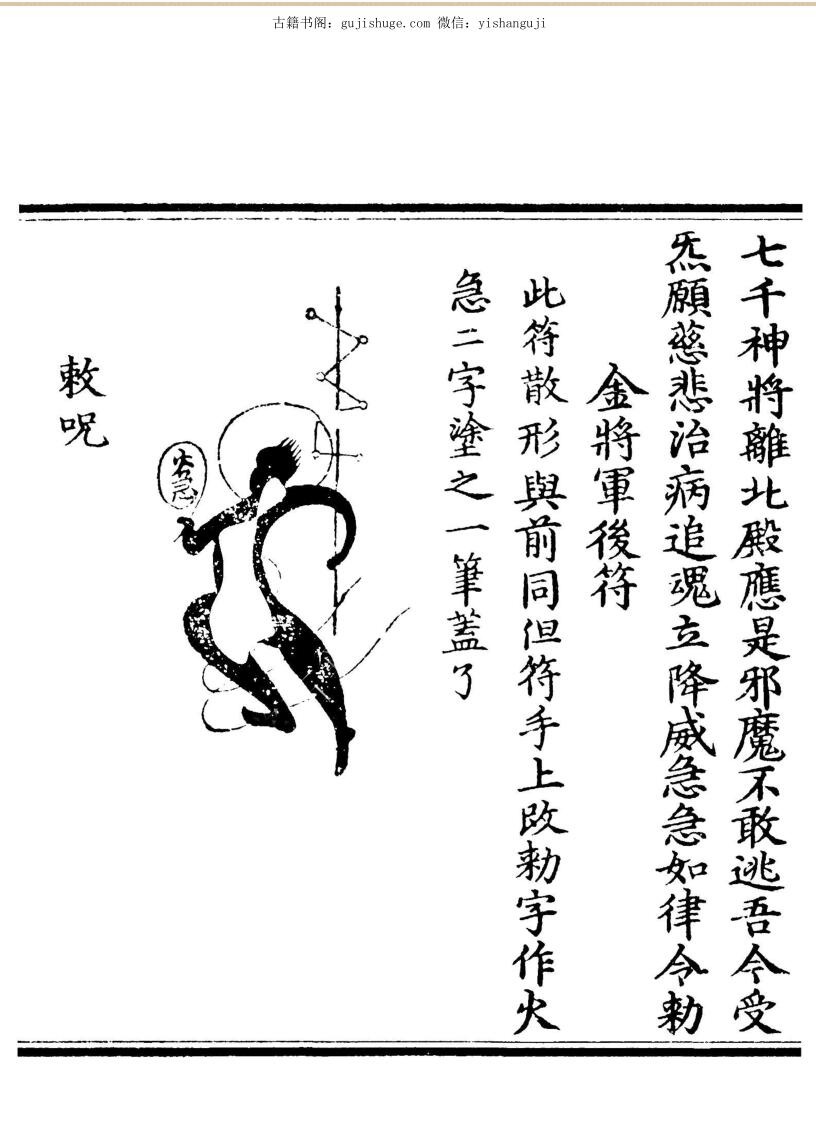 古籍书阁：gujishuge.com 微信：yishanguji
七千神將離北殿應是邪魔不敢逃吾今受
炁願慈悲治病追魂立降威急急如律令勑
金將軍後符
此符散形與前同但符手上改勑字作火
急二字塗之一筆蓋了
火急
敕呪